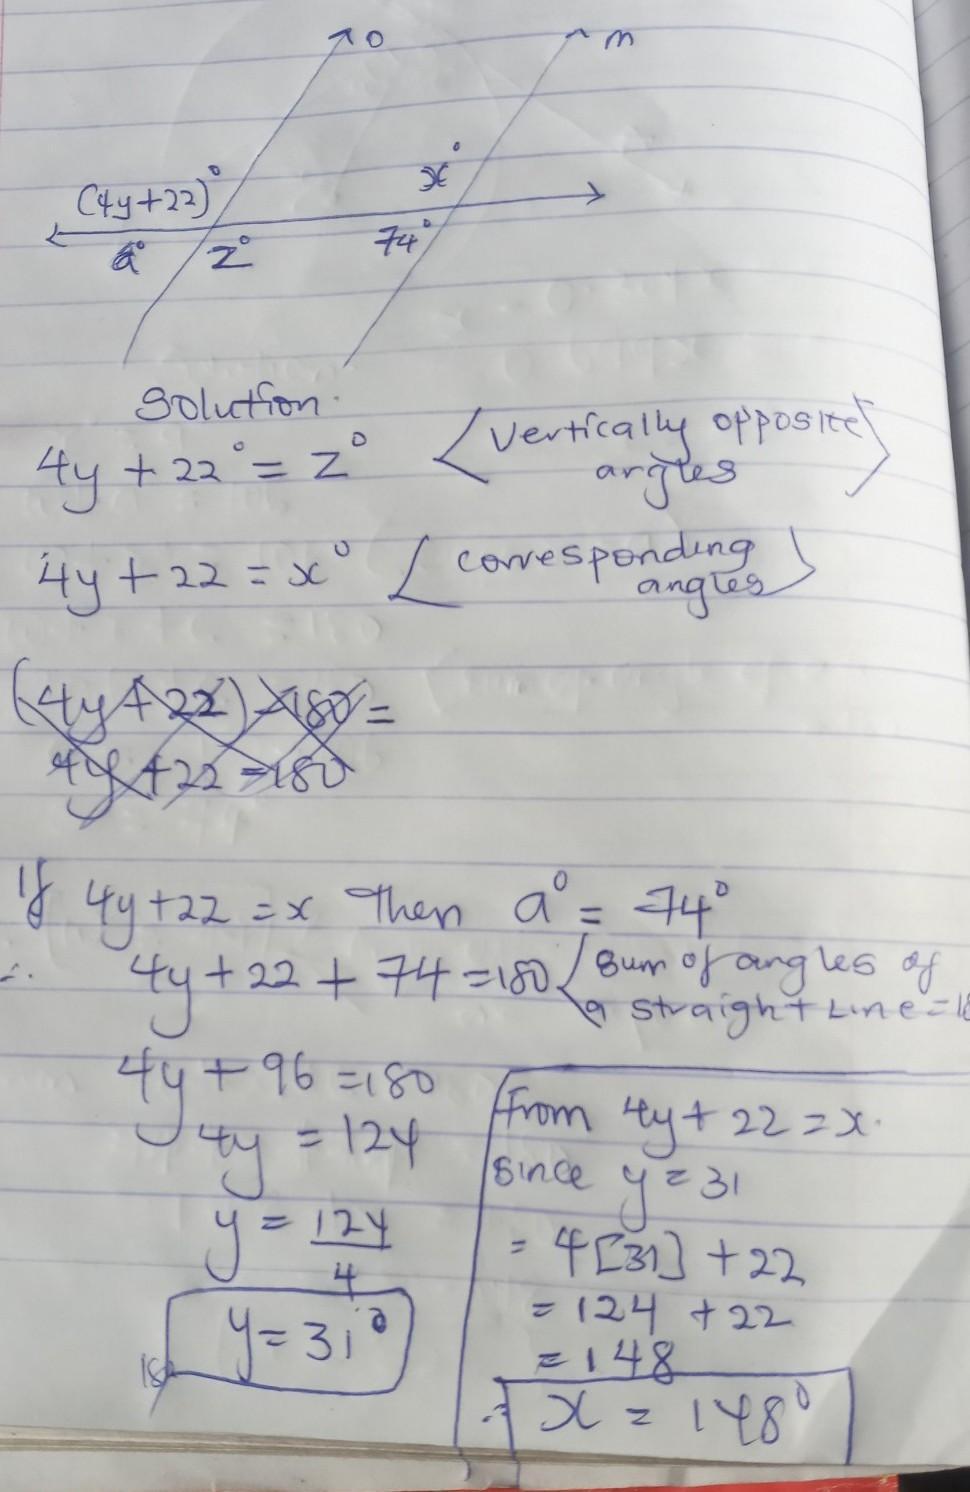 o m
x°
(4y+22)°
a° z° 74°
Solution.
4y + 22° = z° <vertically opposite
angles>
4y + 22 = x° [corresponding
angles>
(4y+22) -180 =
4y +22 = 180
If 4y+22 = x Then a° = 74°
∴ 4y + 22 + 74 = 180 <sum of angles of
a straight Line = 18
4y + 96 = 180
4y = 124
y = 124
4
y = 31°
18
From 4y + 22 = x.
since y = 31
= 4[31] + 22
= 124 + 22
= 148
∴ x = 148°